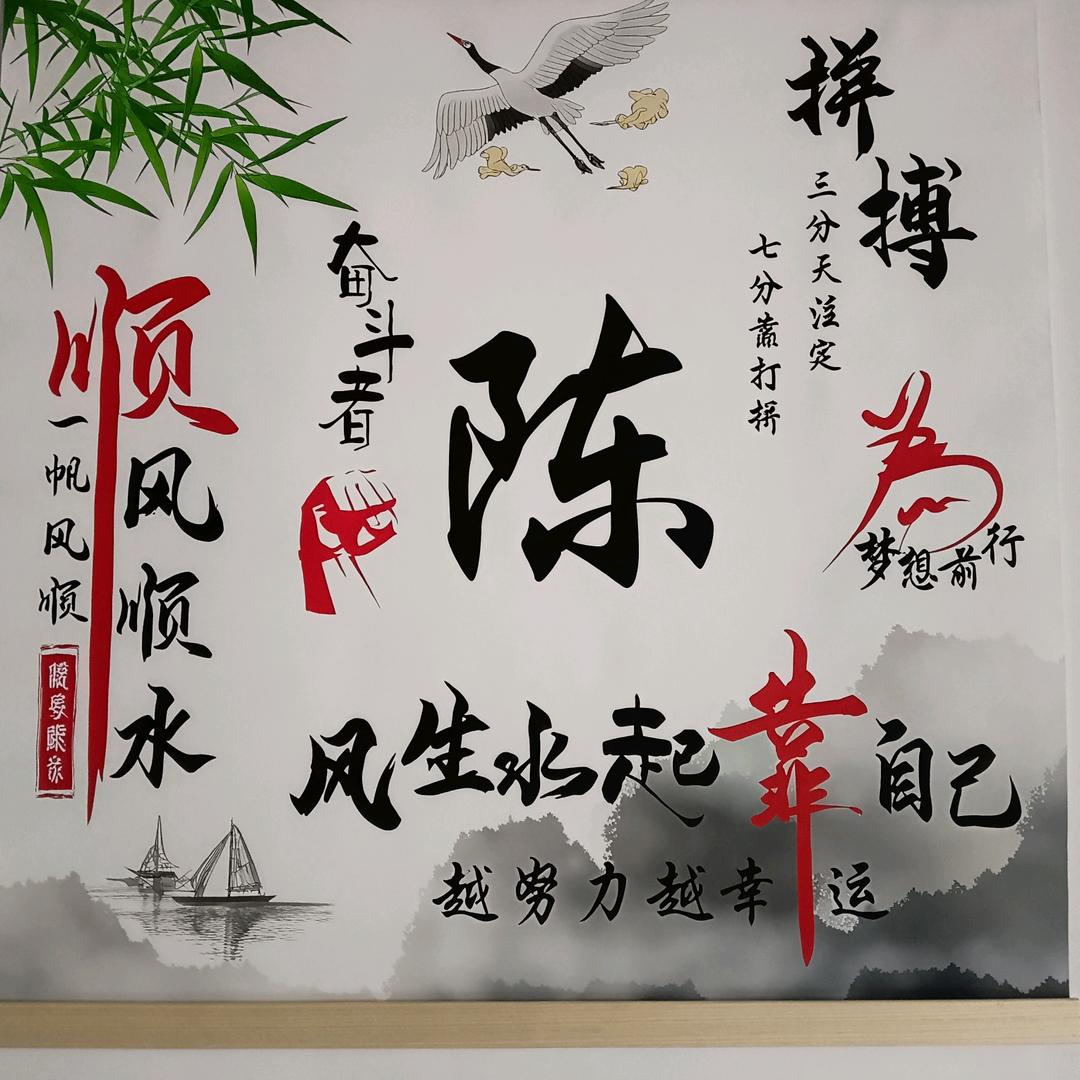 拼搏
三分天注定
七分靠打拼
奋斗者
陈
顺风顺水
一帆风顺
为梦想前行
风生水起靠自己
越努力越幸运